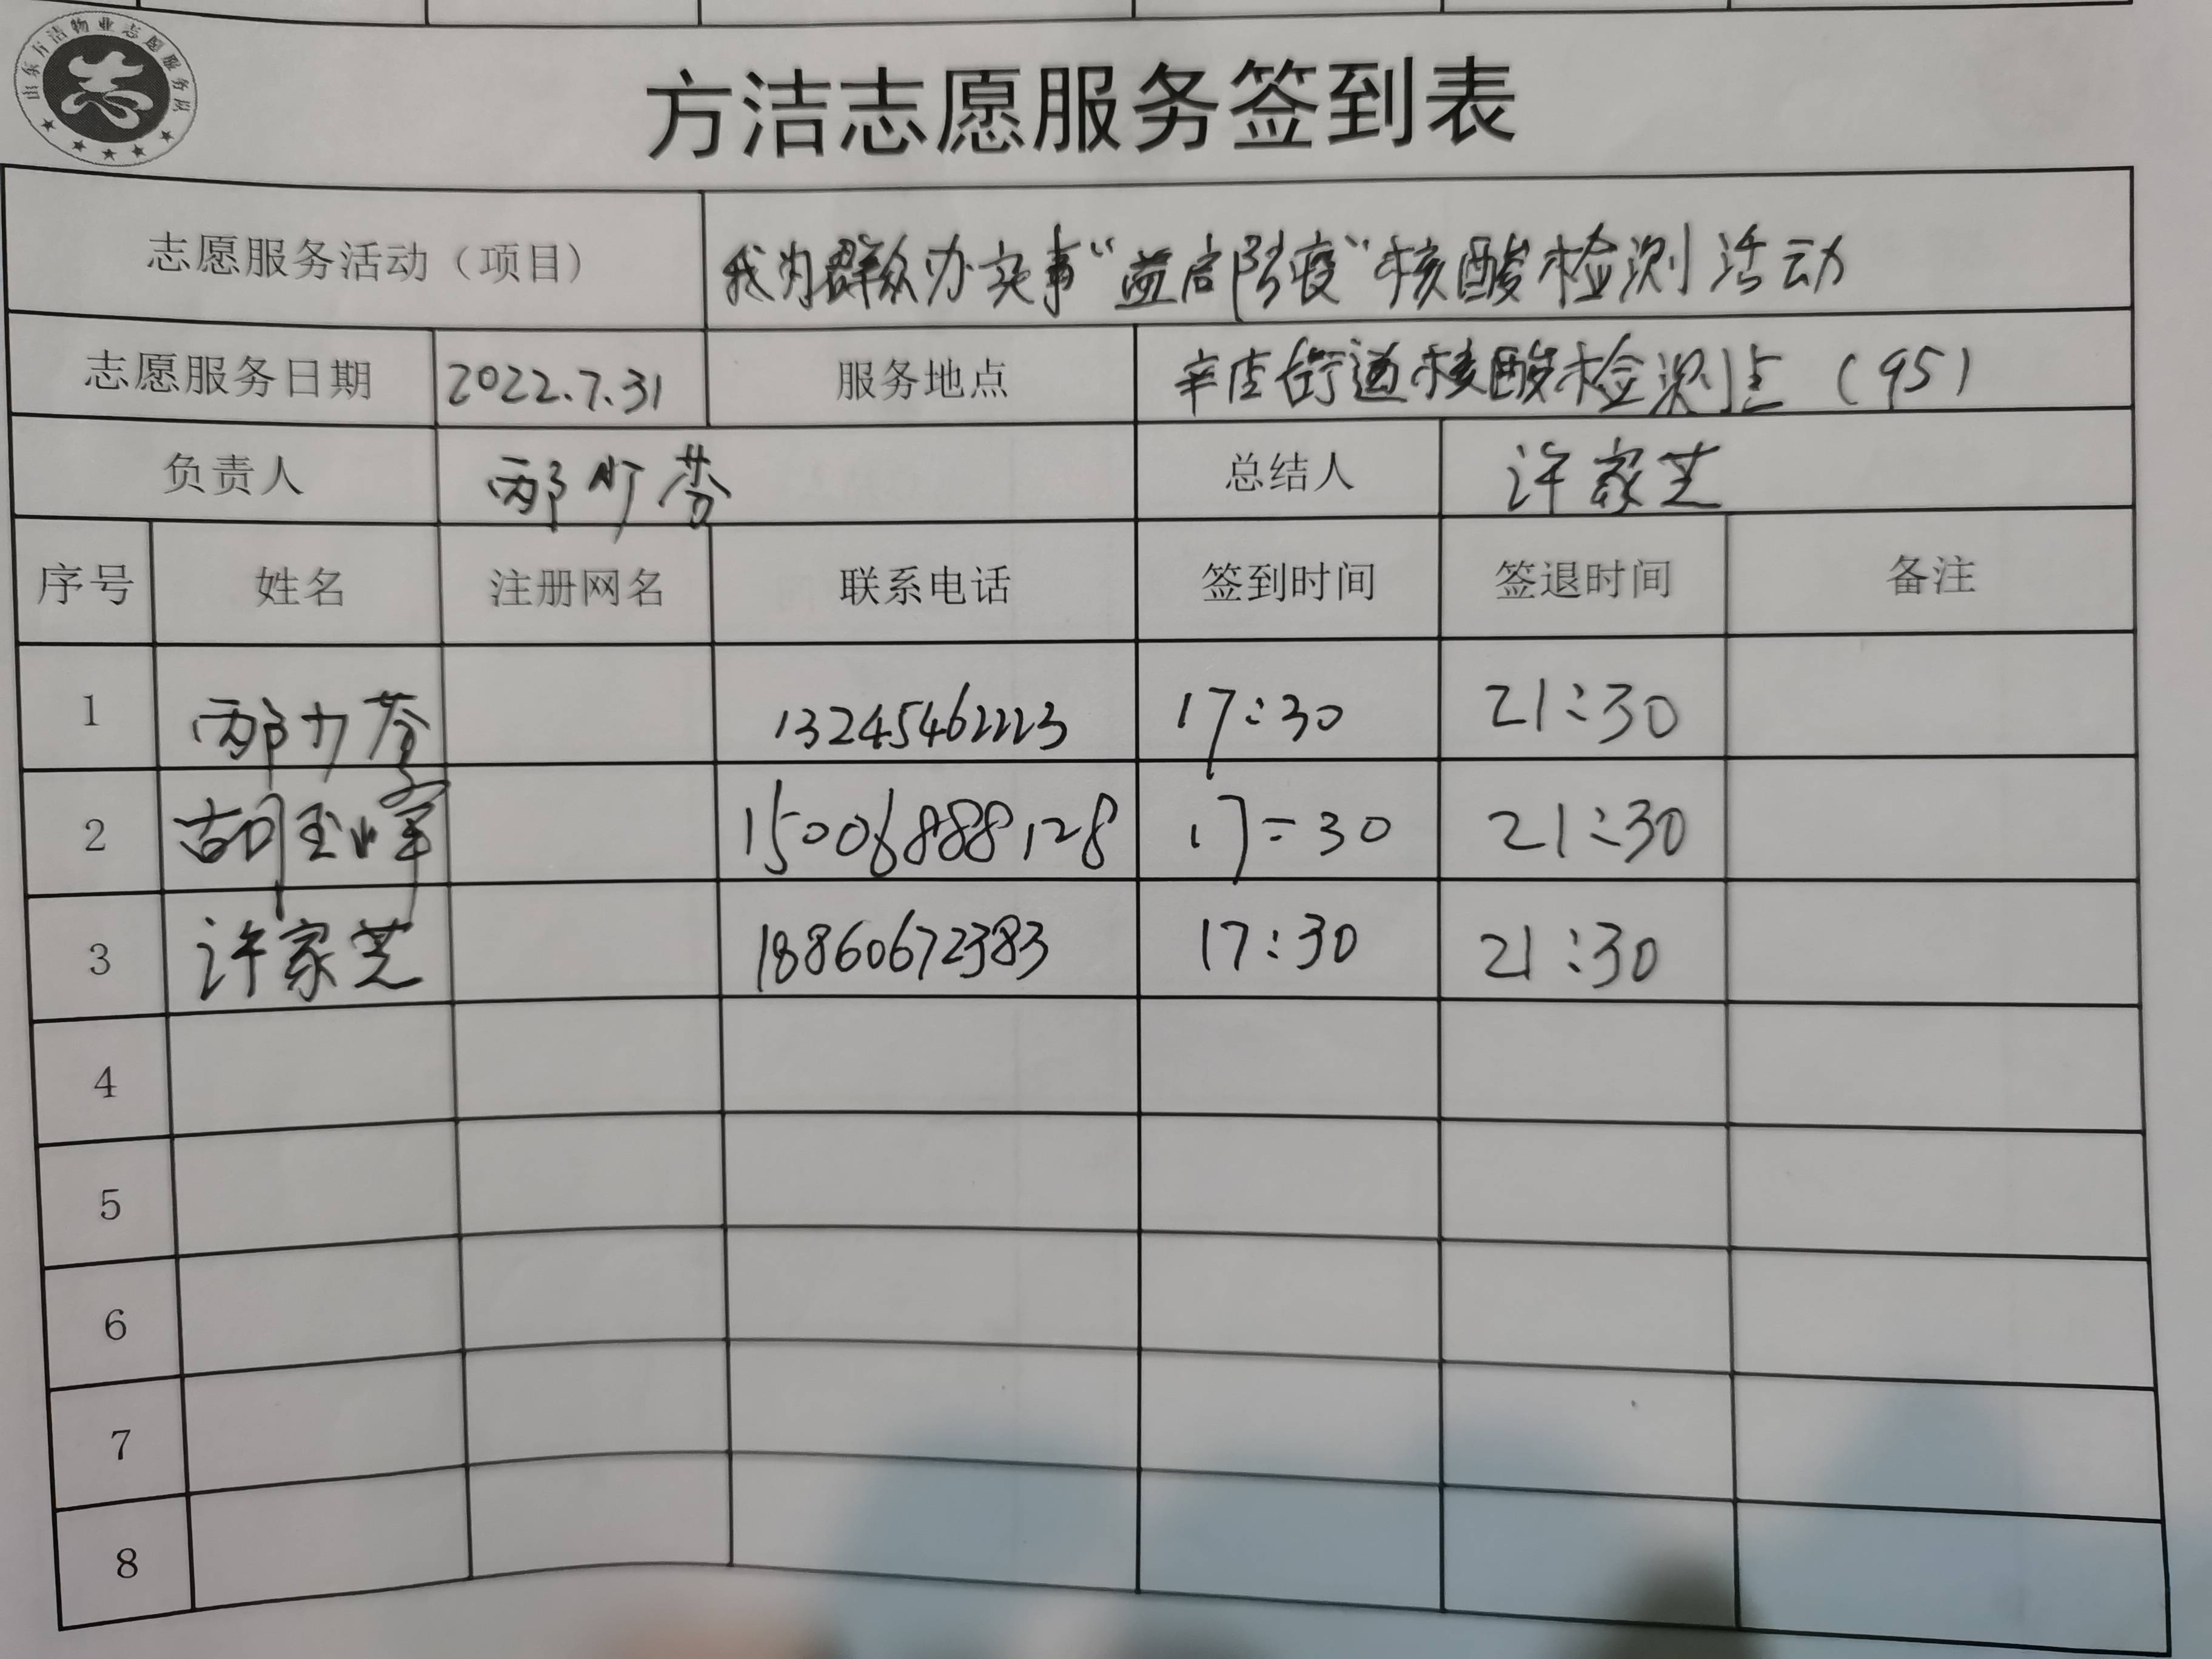 山东方洁物业志愿服务队
方洁志愿服务签到表
志愿服务活动（项目） 我为群众办实事“益启防疫”核酸检测活动
志愿服务日期 2022.7.31 服务地点 辛店街道核酸检测点（95）
负责人 邴 芬 总结人 许家芝
序号 姓名 注册网名 联系电话 签到时间 签退时间 备注
1 邴 芬 13245462223 17:30 21:30
2 胡玉峰 15006888128 17:30 21:30
3 许家芝 18860672383 17:30 21:30
4
5
6
7
8